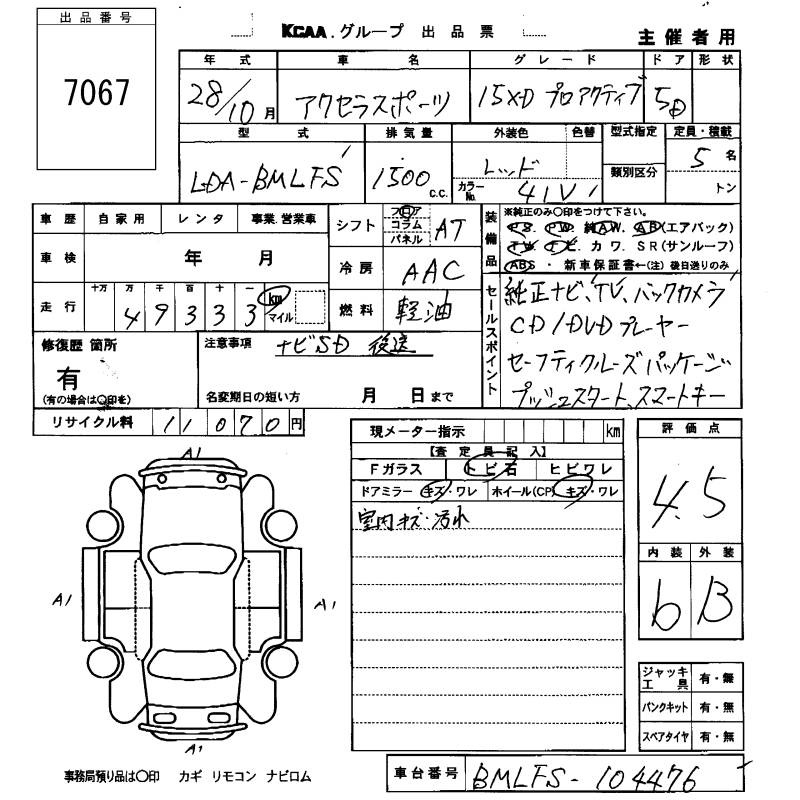 出品番号
7067
KCAA.グループ 出品票
主催者用
年式 車名 グレード ドア 形状
28/10月 アクセラスポーツ 15XD プロアクティブ 5D
型式 排気量 外装色 色替 型式指定 定員・積載
LDA-BMLFS 1500 c.c. レッド 類別区分 5名
カラーNo. 41V トン
車歴 自家用 レンタ 事業.営業車
シフト フロア コラム パネル AT
装備品
※純正のみ○印をつけて下さい。
P.S. P.W. 純A.W. A.B(エアバック)
T.W. ナビ. カワ. S.R(サンルーフ)
ABS ・ 新車保証書←(注)後日送りのみ
車検 年 月
冷房 AAC
走行 十万 万 千 百 十 一
49333 km マイル
燃料 軽油
セールスポイント
純正ナビ、TV、バックカメラ
CD/DVDプレーヤー
セーフティクルーズパッケージ
プッシュスタート、スマートキー
修復歴 箇所
有
(有の場合は○印を)
注意事項 ナビSD 後送
名変期日の短い方 月 日まで
リサイクル料 11070円
現メーター指示 km
【査定員記入】
Fガラス トビ石 ヒビワレ
ドアミラー キズ・ワレ ホイール(CP) キズ・ワレ
室内キズ・汚れ
評価点
4.5
内装 外装
b B
A1
A1
A1
A1
ジャッキ工具 有・無
パンクキット 有・無
スペアタイヤ 有・無
事務局預り品は○印 カギ リモコン ナビロム
車台番号 BMLFS-104476